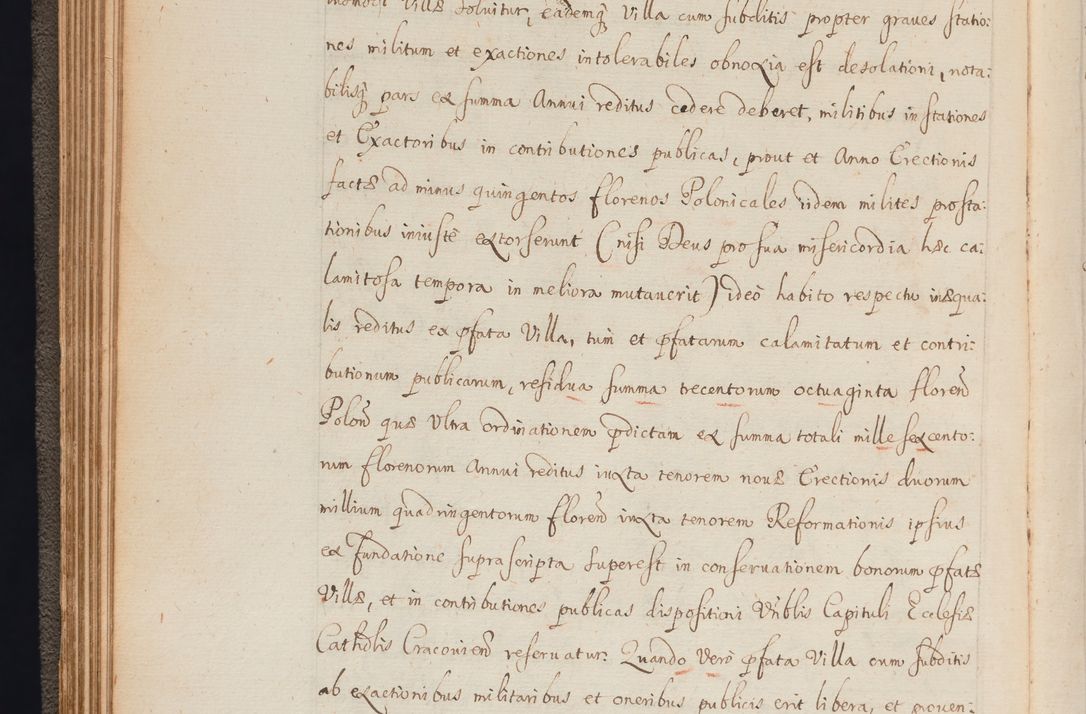 Villæ soluitur, eademq́ Villa cum subditis propter graues statio:
nes militum et exactiones intolerabiles obnoxia est desolationi, nota:
bilisq́ pars ex summa Annui reditus cedere deberet, militibus in stationes
et Exactoribus in contributiones publicas, prout et Anno Erectionis
factæ ad minus quingentos florenos Polonicales iidem milites pro sta:
tionibus iniustè extorserunt (nisi Deus pro sua misericordia hæc ca:
lamitosa tempora in meliora mutauerit) ideò habito respectu inæqua:
lis reditus ex pfata Villa, tùm et pfatarum calamitatum et contri:
butionum publicarum, residua summa trecentorum octuaginta floreñ
Poloñ quæ Vltra ordinationem pdictam ex summa totali mille sexcento:
rum florenorum Annui reditus iuxta tenorem nouæ Erectionis duorum
millium quadringentorum floreñ iuxta tenorem Reformationis ipsius
ex fundatione suprascripta superest in conseruationem bonorum pfatæ
Villæ, et in contributiones publicas dispositioni Vñblis Capituli Ecclesiæ
Cathdlis Cracouieñ reseruatur. Quando Verò pfata Villa cum subditis
ab exactionibus militaribus et oneribus publicis erit libera, et prouen: